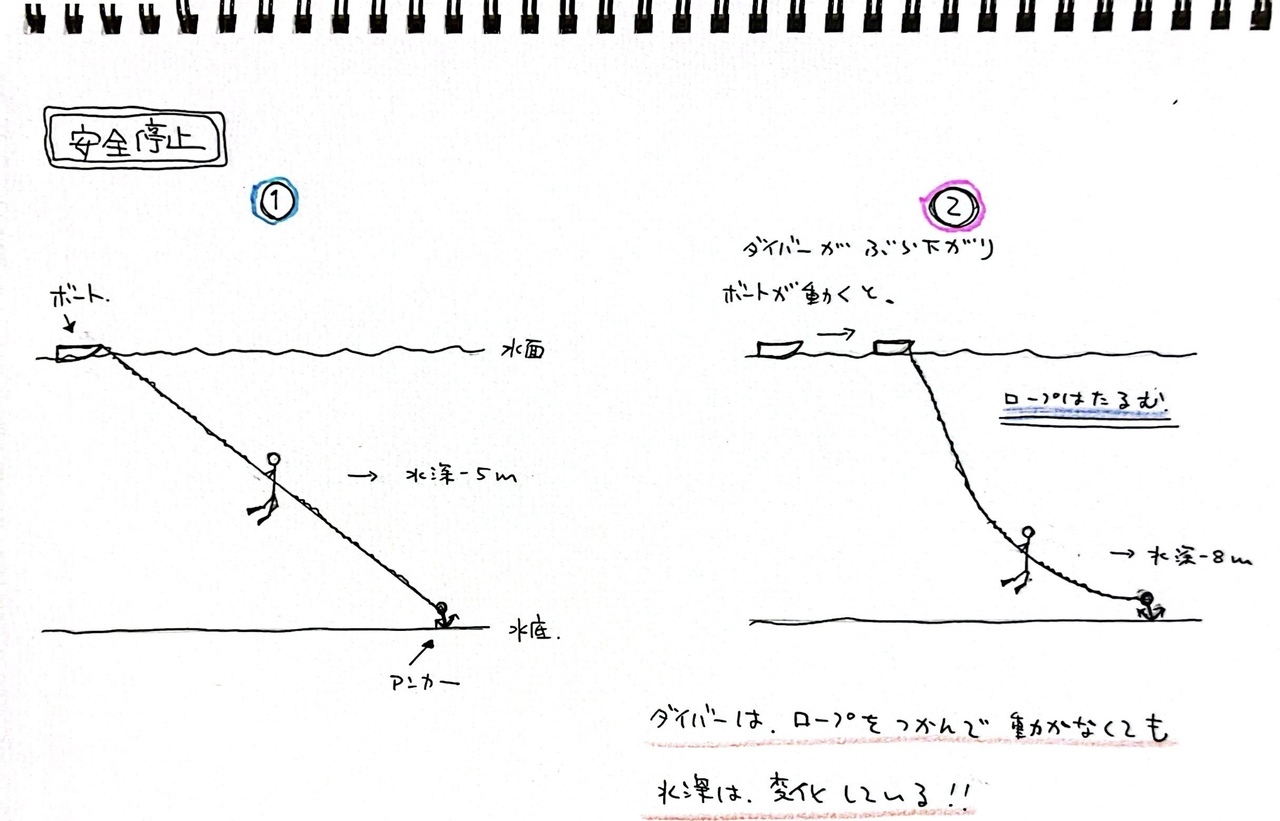 安全停止
①
ボート.
水面
水深-5m
水底.
アンカー
②
ダイバーが ぶら下がり
ボートが動くと、
ロープはたるむ.
水深-8m
ダイバーは、ロープをつかんで動かなくても
水深は、変化している!!